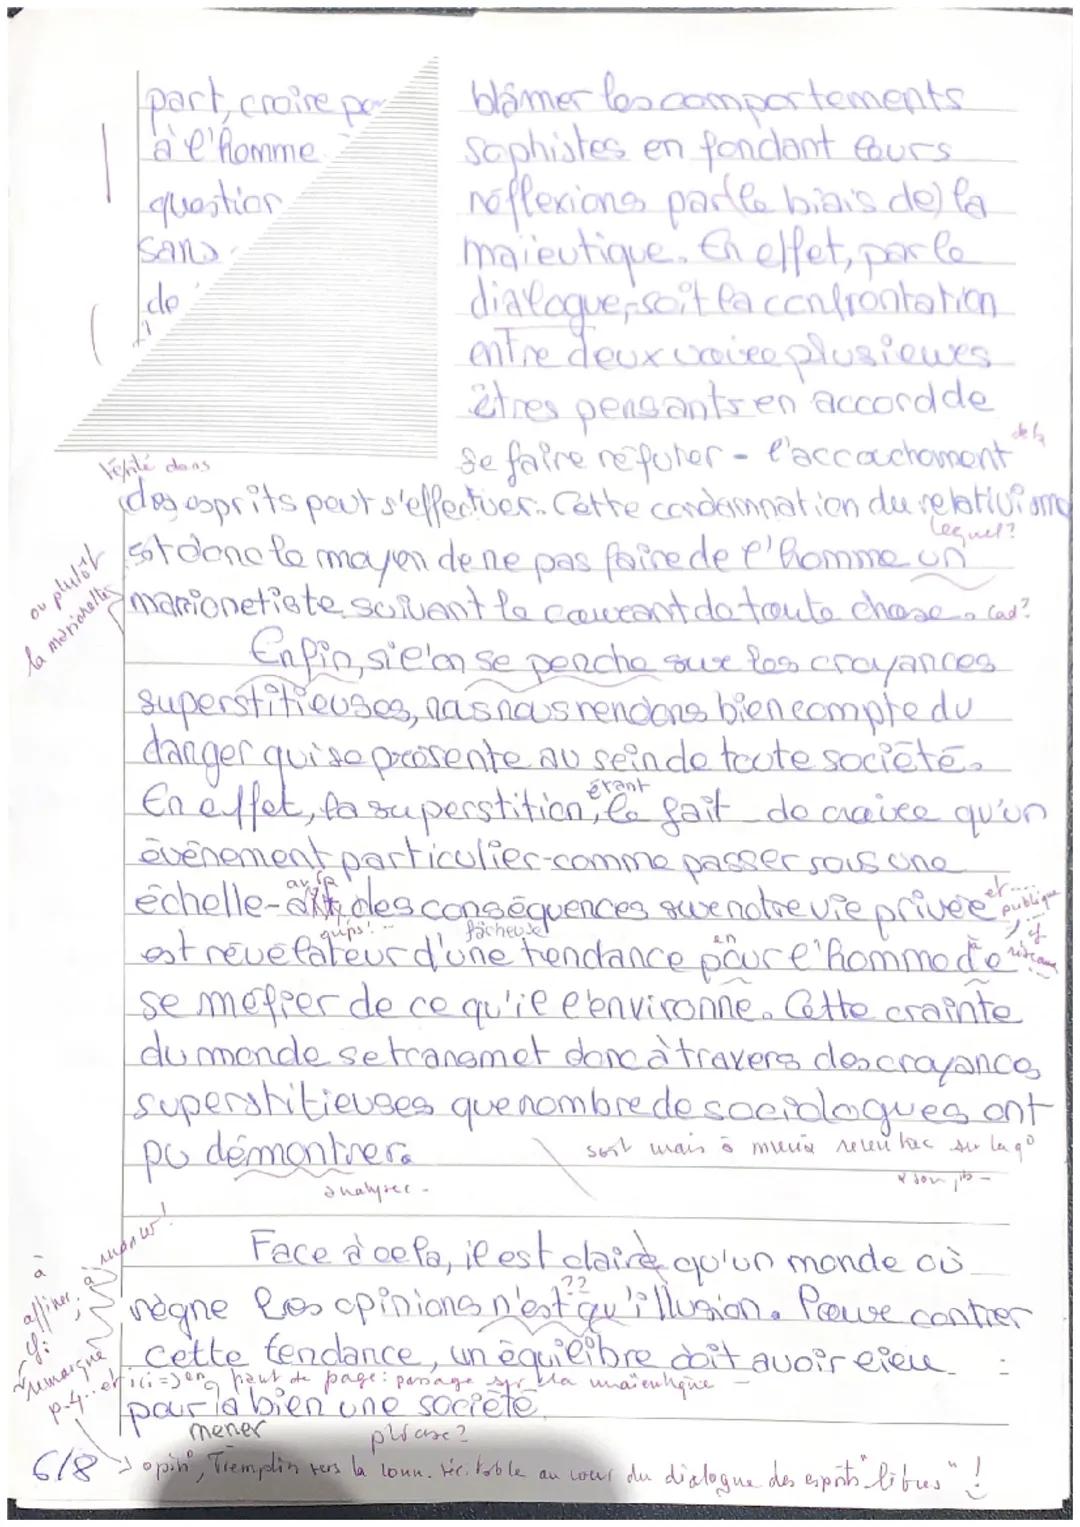 part, croire
à l'homme
question
sans
de
blâmer les comportements
sophistes en fondant leurs
réflexions par le biais de) la
maïeutique. En effet, par le
dialogue, soit la confrontation
entre deux voire plusieures
êtres pensants en accord de
se faire réfuter - l'accouchement
de la
Vérité dans
des esprits peut s'effectuer. Cette condamnation du relativisme
lequel?
est donc le moyen de ne pas faire de l'homme un
ou plutôt
la marionette
marionetiste suivant le courant de toute chose. Cad?
Enfin, si l'on se penche sur les croyances
superstitieuses, nous nous rendons bien compte du
danger qui se présente au sein de toute société.
étant
En effet, la superstition, le fait de croire qu'un
évènement particulier-comme passer sous une
échelle- des conséquences sur notre vie privée
et... publique
fâcheuse
en
est révélateur d'une tendance pour l'homme de
à
se méfier de ce qu'il l'environne. Cette crainte
du monde se transmet donc à travers des croyances
superstitieuses que nombre de sociologues ont
pu démontrer.
soit mais à mieux
analyser -
Face à cela, il est claire qu'un monde où
à
affiner
??
règne les opinions n'est qu'illusion. Pour contrer
cette tendance, un équilibre doit avoir lieu
remarque
p.4... et ici => en haut de page: passage sur la maïeutique
pour la bien une société
mener
phrase?
6/8
opin°, Tremplin vers la conn. véritable au cœur du dialogue des esprits "libres" !